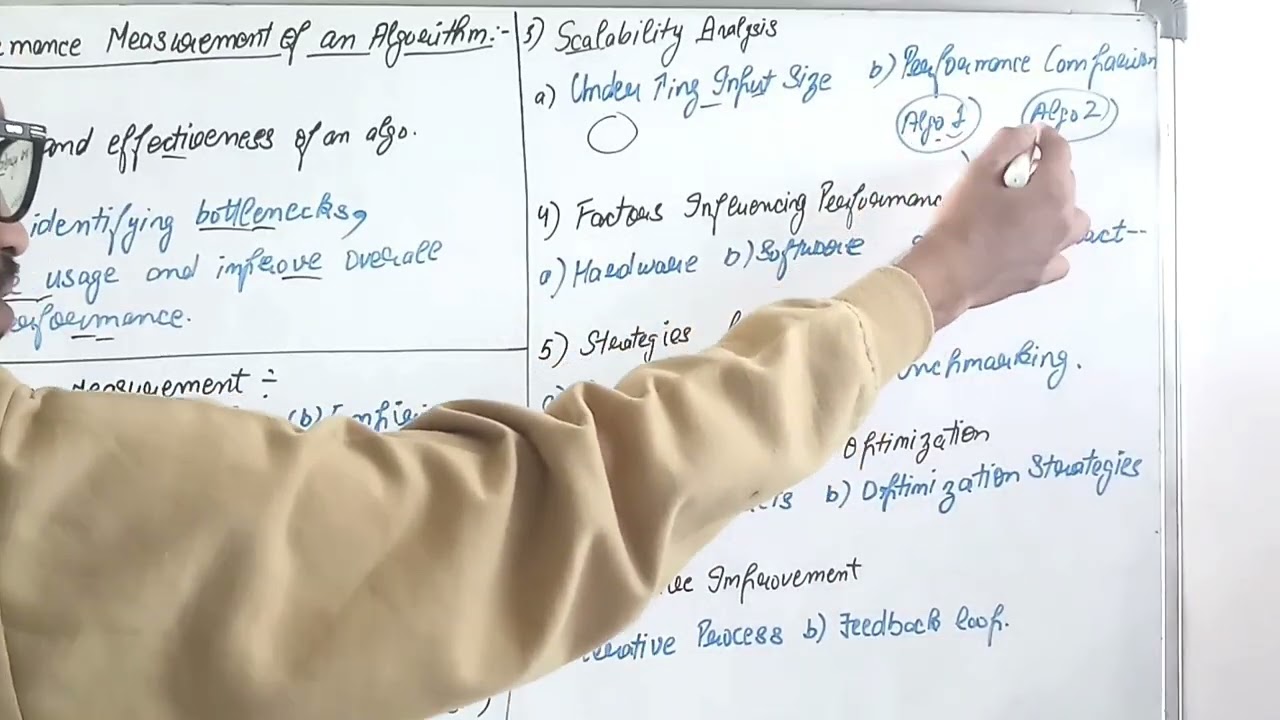 mance Measurement of an Algorithm:-
and effectiveness of an algo.
identifying bottlenecks,
usage and improve overall
performance.
Measurement ÷
(b)
3) Scalability Analysis
a) Input Size b) Performance Comparison
Algo 1 Algo 2
4) Factors Influencing Performanc
a) Hardware b) Software act--
5) Strategies
nchmarking.
Optimization
b) Optimization Strategies
Improvement
erative Process b) Feedback loop.